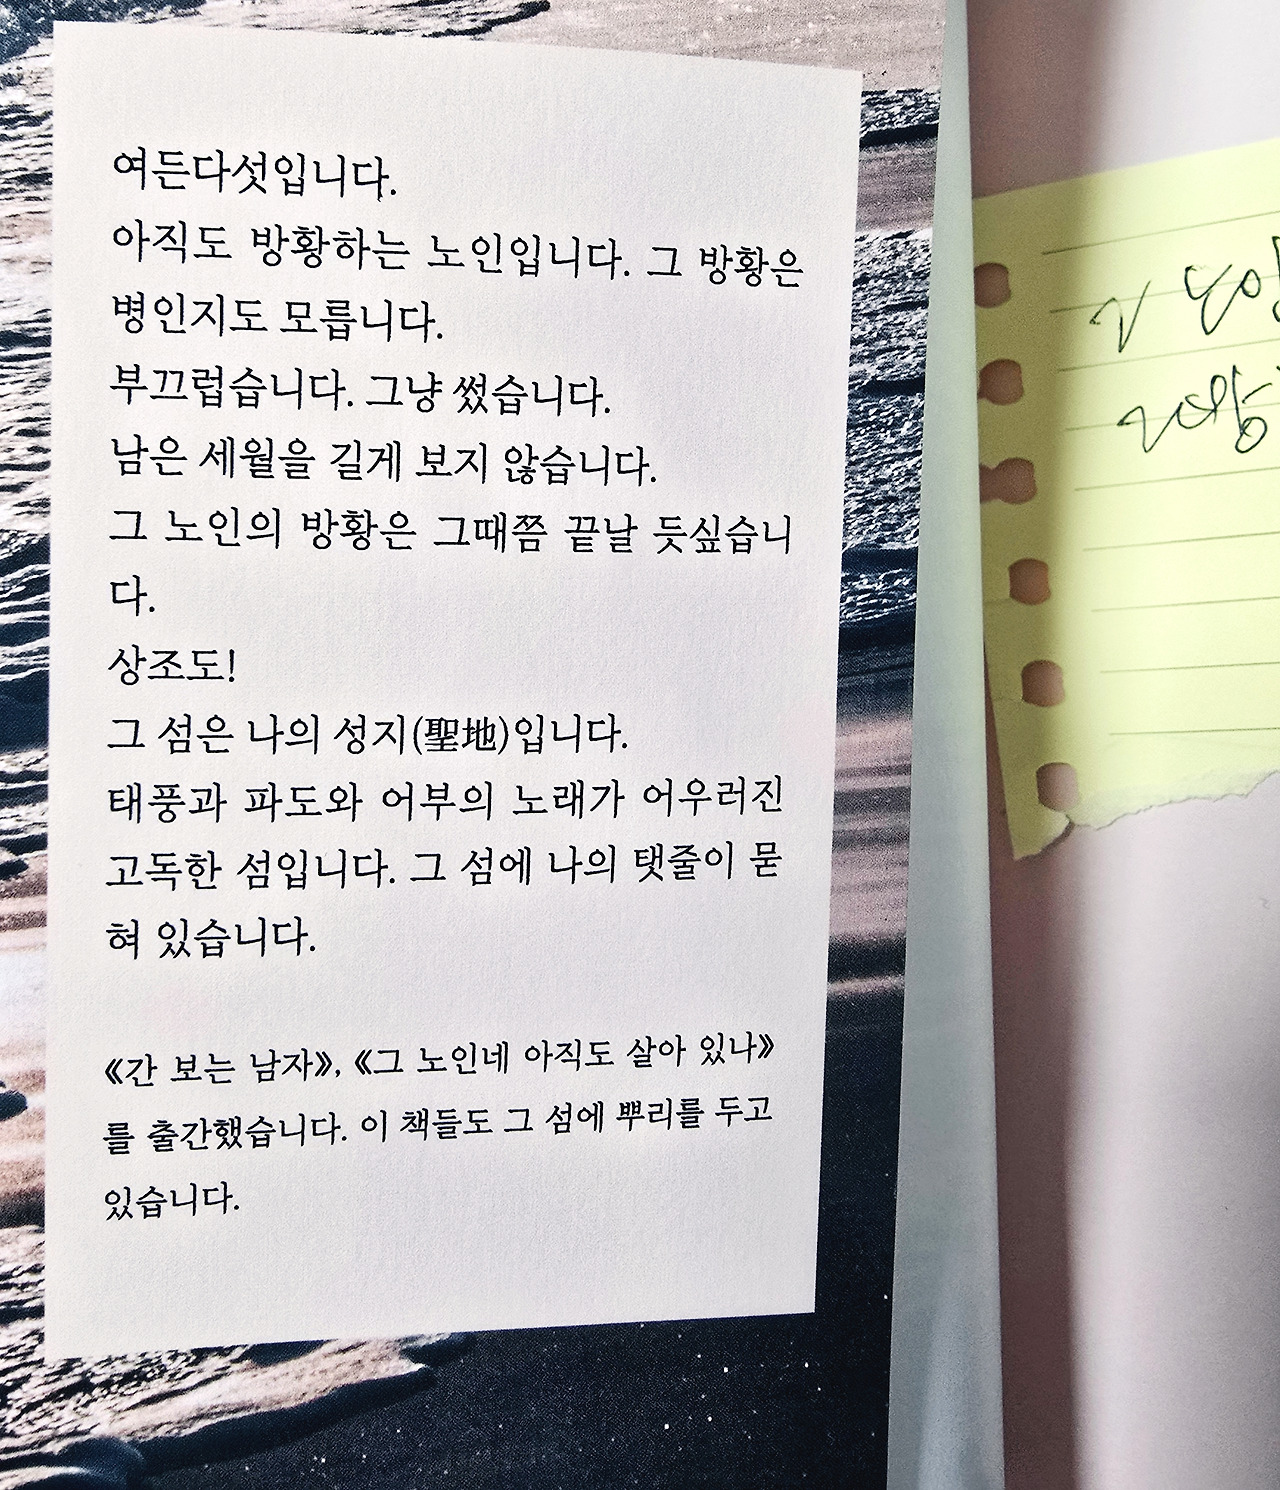 여든다섯입니다.
아직도 방황하는 노인입니다. 그 방황은
병인지도 모릅니다.
부끄럽습니다. 그냥 썼습니다.
남은 세월을 길게 보지 않습니다.
그 노인의 방황은 그때쯤 끝날 듯싶습니
다.
상조도!
그 섬은 나의 성지(聖地)입니다.
태풍과 파도와 어부의 노래가 어우러진
고독한 섬입니다. 그 섬에 나의 탯줄이 묻
혀 있습니다.
《간 보는 남자》, 《그 노인네 아직도 살아 있나》
를 출간했습니다. 이 책들도 그 섬에 뿌리를 두고
있습니다.